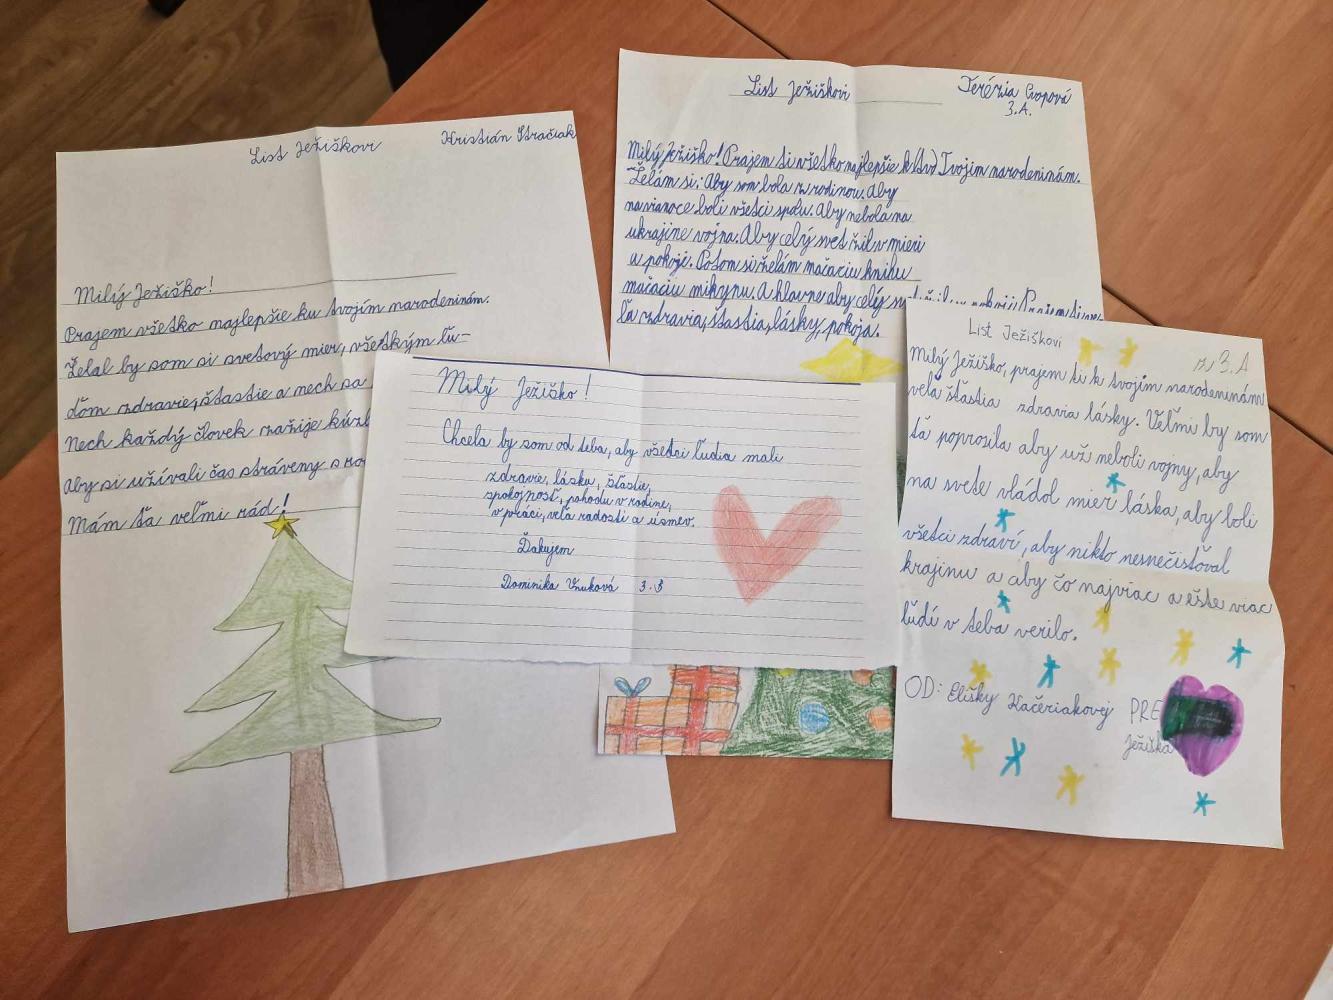 List Ježiškovi
Kristián Stračiak
Milý Ježiško!
Prajem všetko najlepšie ku tvojím narodeninám.
Želal by som si svetový mier, všetkým ľu-
ďom zdravie, šťastie a nech sa
Nech každý človek zažije
aby si užívali čas stráveny s
Mám ťa veľmi rád!
List Ježiškovi
Terézia Cvopová
3.A.
Milý Ježiško! Prajem ti všetko najlepšie k Tvojim narodeninám.
Želám si: Aby som bola z rodinou. Aby
na vianoce boli všetci spolu. Aby nebola na
ukrajine vojna. Aby celý svet žil v mieri
a pokoji. Potom si želám mačaciu knihu
mačaciu mikynu. A hlavne aby celý
ľa zdravia, šťastia, lásky, pokoja.
Milý Ježiško!
Chcela by som od teba, aby všetci ľudia mali
zdravie, lásku, šťastie,
spokojnosť, pohodu v rodine,
v práci, veľa radosti a úsmev.
Ďakujem
Dominika Vnuková 3.B
List Ježiškovi
z 3.A
Milý Ježiško, prajem ti k tvojim narodeninám
veľa šťastia zdravia lásky. Veľmi by som
ťa poprosila aby už neboli vojny, aby
na svete vládol mier láska, aby boli
všetci zdraví, aby nikto neznečisťoval
krajinu a aby čo najviac a ešte viac
ľudí v teba verilo.
OD: Elišky Kačeriakovej PRE
Ježiška